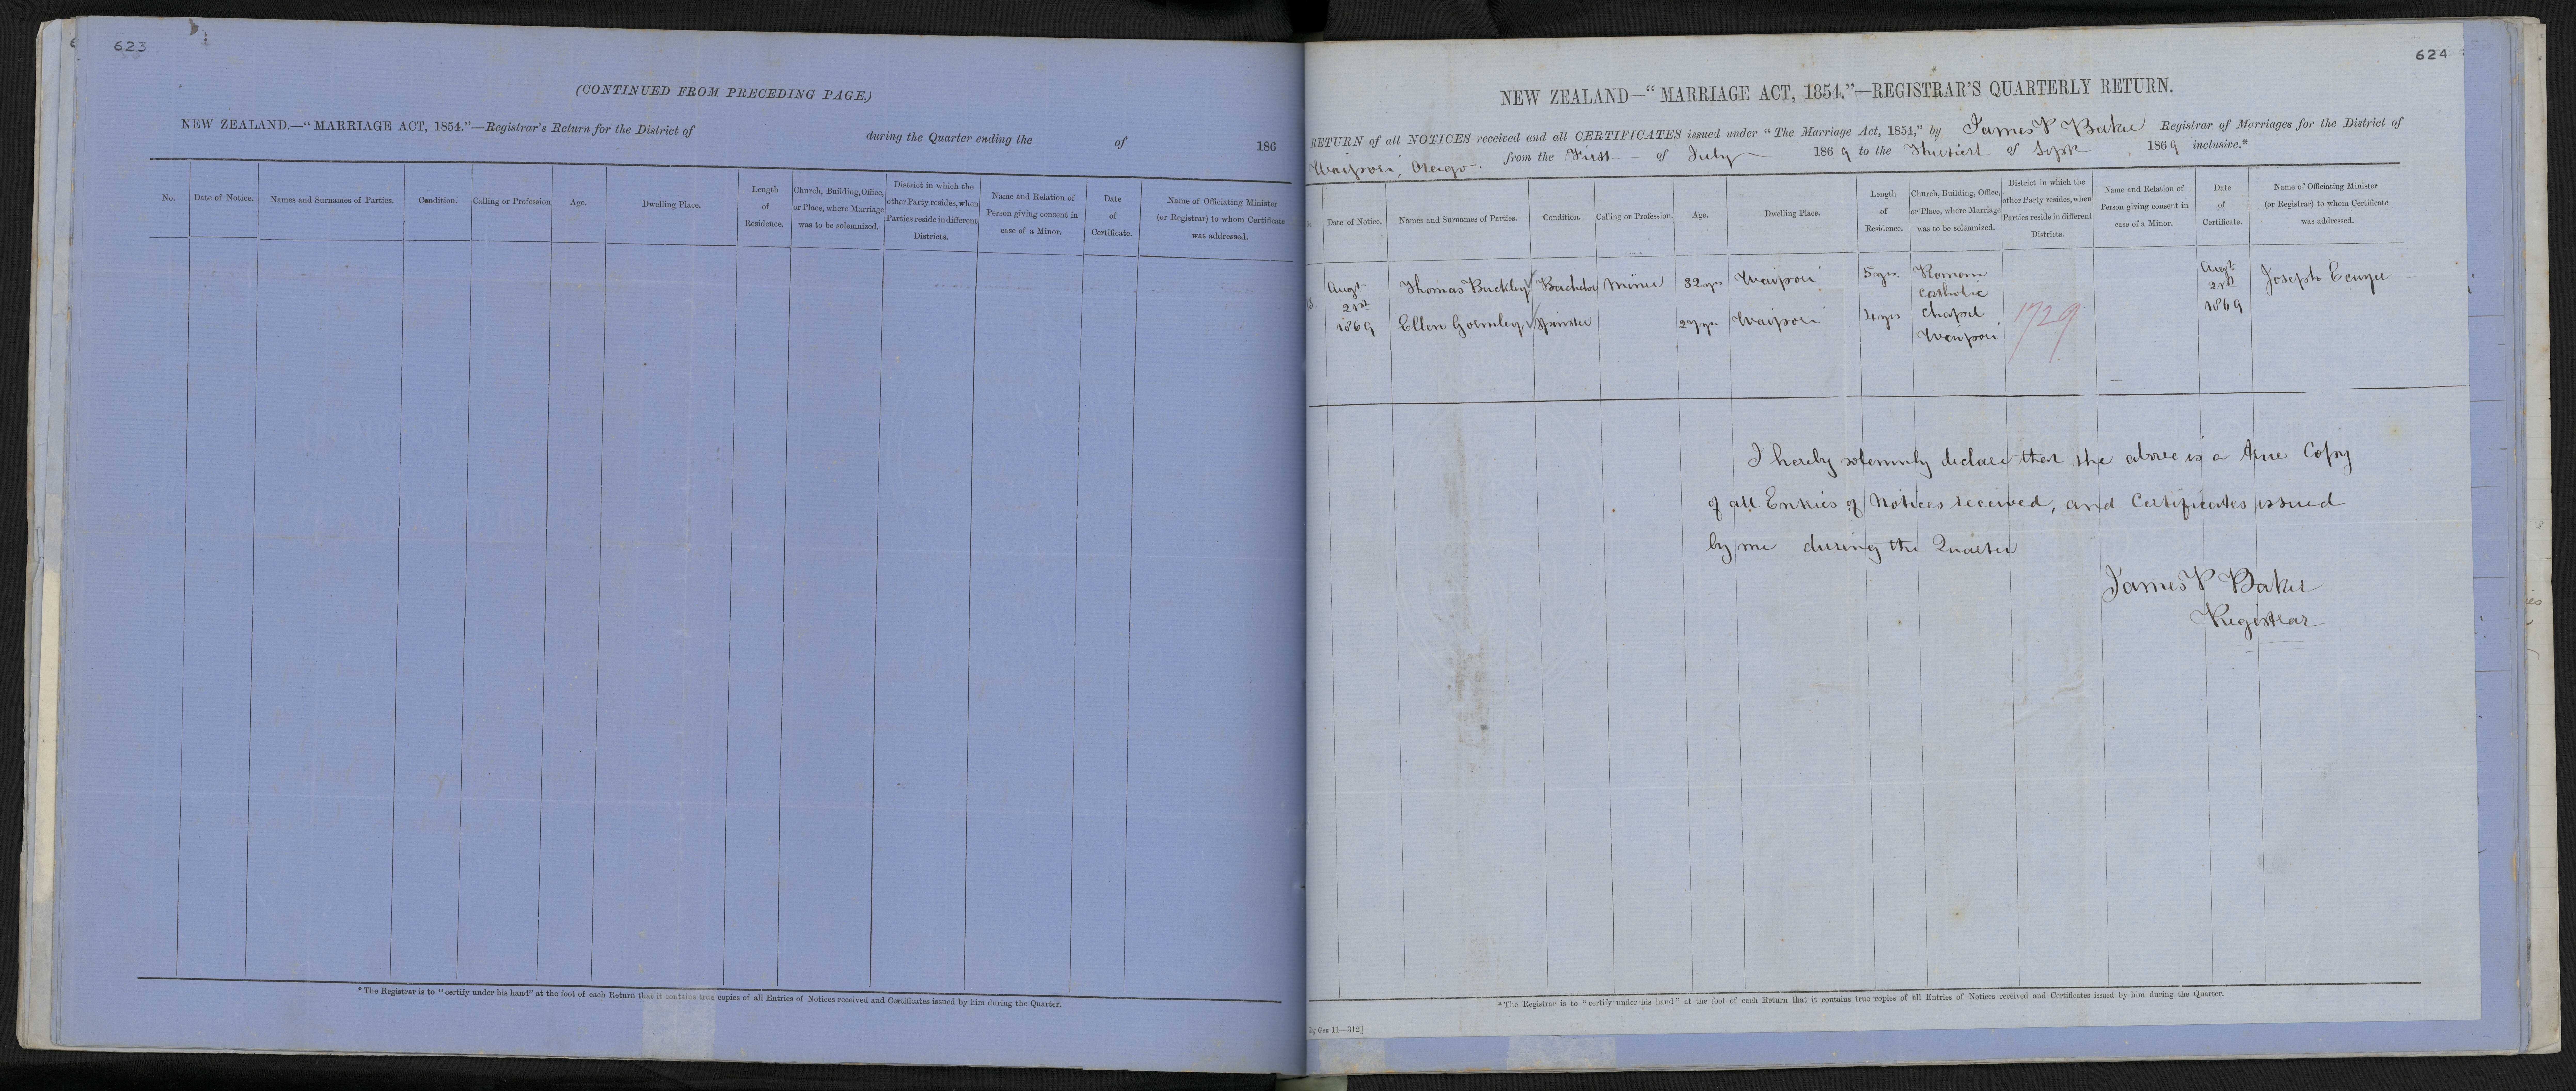 623
(CONTINUED FROM PRECEDING PAGE.)
NEW ZEALAND.—"MARRIAGE ACT, 1854."—Registrar's Return for the District of during the Quarter ending the of 186
No.
Date of Notice.
Names and Surnames of Parties.
Condition.
Calling or Profession
Age.
Dwelling Place.
Length
of
Residence.
Church, Building, Office,
or Place, where Marriage
was to be solemnized.
District in which the
other Party resides, when
Parties reside in different
Districts.
Name and Relation of
Person giving consent in
case of a Minor.
Date
of
Certificate.
Name of Officiating Minister
(or Registrar) to whom Certificate
was addressed.
*The Registrar is to "certify under his hand" at the foot of each Return that it contains true copies of all Entries of Notices received and Certificates issued by him during the Quarter.
624
NEW ZEALAND—"MARRIAGE ACT, 1854."—REGISTRAR'S QUARTERLY RETURN.
RETURN of all NOTICES received and all CERTIFICATES issued under "The Marriage Act, 1854," by James P Baker Registrar of Marriages for the District of
Waipori, Otago. from the First of July 1869 to the Thirtieth of Sept 1869 inclusive.*
Date of Notice.
Names and Surnames of Parties.
Condition.
Calling or Profession.
Age.
Dwelling Place.
Length
of
Residence.
Church, Building, Office,
or Place, where Marriage
was to be solemnized.
District in which the
other Party resides, when
Parties reside in different
Districts.
Name and Relation of
Person giving consent in
case of a Minor.
Date
of
Certificate.
Name of Officiating Minister
(or Registrar) to whom Certificate
was addressed.
Augt
21st
1869
Thomas Buckley
Bachelor
Miner
32 yrs
Waipori
5 yrs.
Ellen Gormley
Spinster
27 yrs
Waipori
4 yrs
Roman
Catholic
Chapel
Waipori
1729
Augt
21st
1869
Joseph Ecuyer
I hereby solemnly declare that the above is a true Copy
of all Entries of Notices received, and Certificates issued
by me during the Quarter
James P Baker
Registrar
*The Registrar is to "certify under his hand" at the foot of each Return that it contains true copies of all Entries of Notices received and Certificates issued by him during the Quarter.
Gen 11—312]